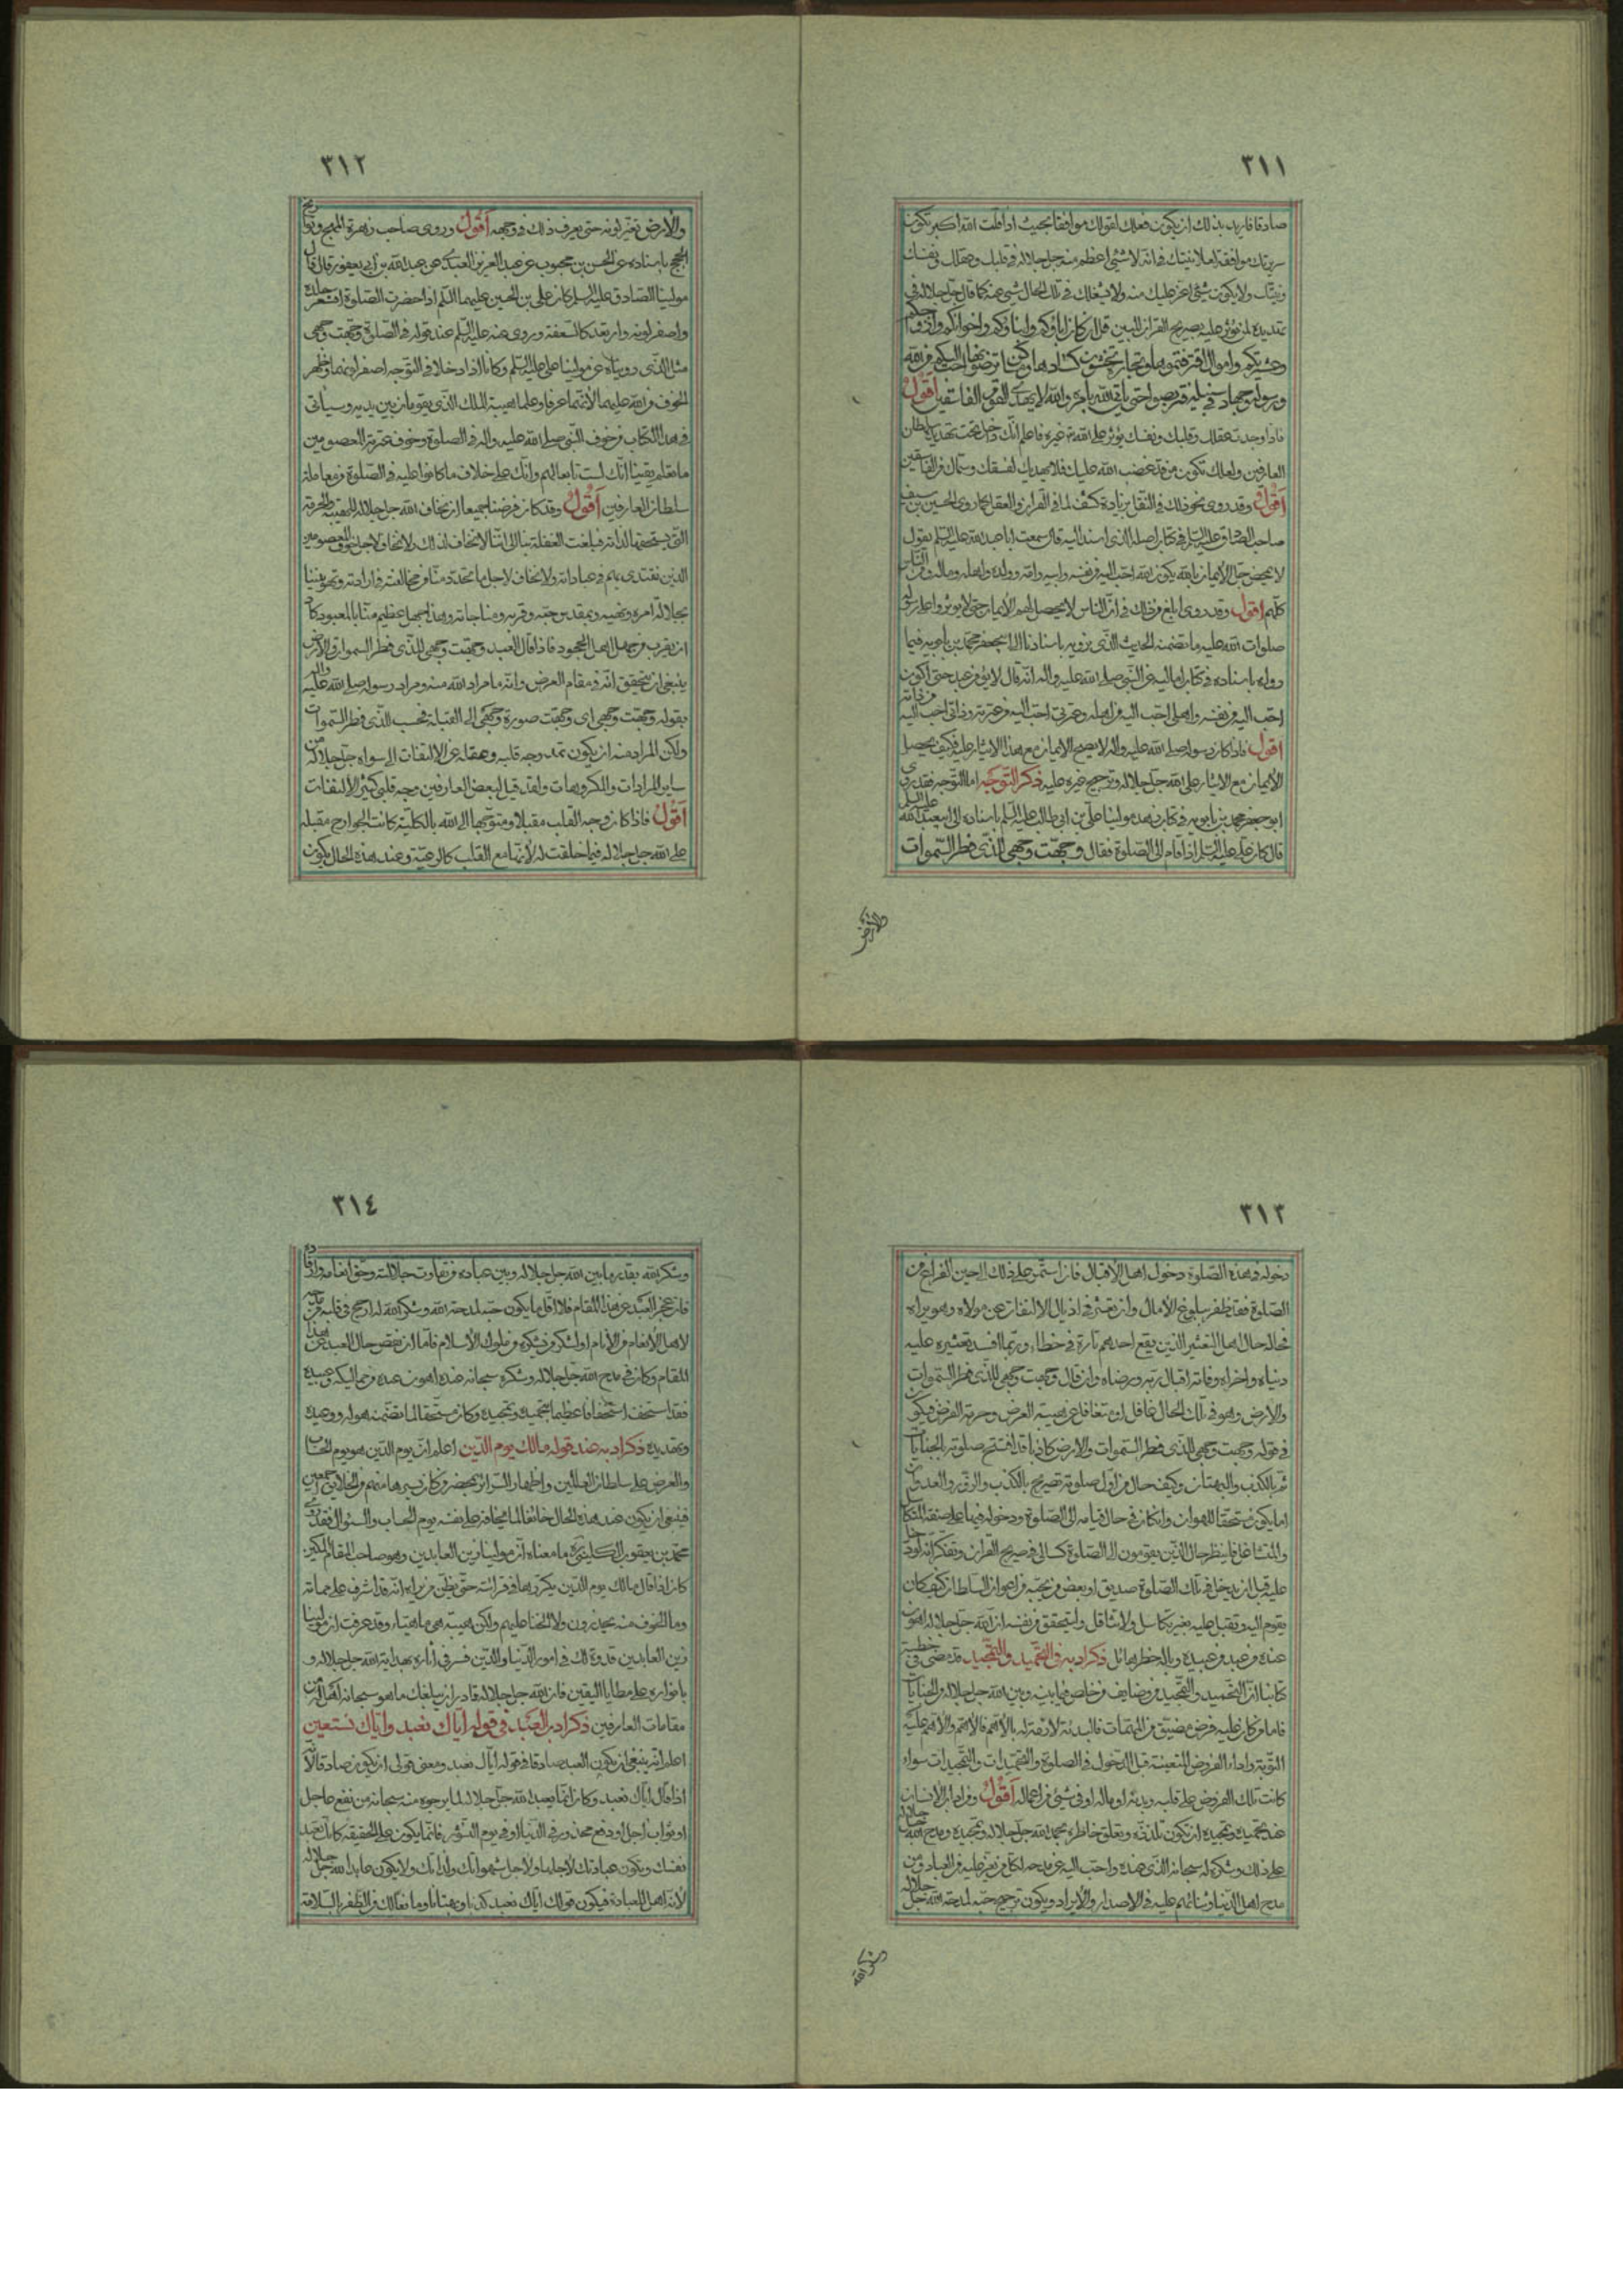 ٣١١
صادقا فاريد بذلك ان يكون فعلك لقولك موافقا بحيث اذا قلت الله اكبر تكون
سريرتك موافقة لعلانيتك في انه لا شئ اعظم من الله جل جلاله في قلبك وعقلك ونفسك
ونيتك ولا يكون شئ اعز عليك منه ولا يشغلك في تلك الحال شئ عنه كما قال جل جلاله في
تهديده لمن يؤثر عليه بصريح القران المبين قل ان كان اباؤكم وابناؤكم واخوانكم وازواجكم
وعشيرتكم واموال اقترفتموها وتجارة تخشون كسادها ومساكن ترضونها احب اليكم من الله
ورسوله وجهاد في سبيله فتربصوا حتى ياتي الله بامره والله لا يهدي القوم الفاسقين اقول
فاذا وجدت عقلك وقلبك ونفسك يؤثر على الله غيره فاعلم انك داخل تحت تهديد سلطان
العارفين ولعلك تكون ممن قد غضب الله عليك فلا يهديك لفسقك وسماك من الفاسقين
اقول وقد روى نحو ذلك في النقل زيادة كشف لما في القران والعقل كما روى الحسين بن سيف
صاحب الصادق عليه السلم في كتاب اصله الذي اسنده اليه قال سمعت ابا عبد الله عليه السلم يقول
لا يمحض رجل الايمان بالله حتى يكون الله احب اليه من نفسه وابيه وامه وولده واهله وماله ومن الناس
كلهم اقول وقد روى ابلغ من ذلك في ان الناس لا يحصل لهم الايمان حتى لا يؤثروا على رسول الله
صلوات الله عليه ما تضمنه الحديث الذي نرويه باسنادنا الى ابي جعفر محمد بن بابويه فيما
رواه باسناده في كتاب اماليه عن النبي صلى الله عليه واله انه قال لا يؤمن عبد حتى اكون
احب اليه من نفسه واهلي احب اليه من اهله وعترتي احب اليه من عترته وذاتي احب اليه من ذاته
اقول فاذا كان رسوله صلى الله عليه واله لا يصح الايمان مع هذا الايثار عليه فكيف يحصل
الايمان مع الايثار على الله جل جلاله وترجيح غيره عليه ذكر التوجه اما التوجه فقد روى
ابو جعفر محمد بن بابويه في كتاب زهد مولينا علي بن ابي طالب عليه السلم باسناده الى ابي عبد الله عليه السلم
قال كان علي عليه السلم اذا قام الى الصلوة فقال وجهت وجهي للذي فطر السموات
والارض
٣١٢
والارض تغير لونه حتى يعرف ذلك في وجهه اقول وروى صاحب زهرة المهج وتواريخ
الحجج باسناده عن الحسن بن محبوب عن عبد العزيز العبدي عن عبد الله بن ابي يعفور قال قال
مولينا الصادق عليه السلم كان علي بن الحسين عليهما السلم اذا حضرت الصلوة اقشعر جلده
واصفر لونه وارتعد كالسعفة وروى عنه عليه السلم عند قوله في الصلوة وجهت وجهي
مثل الذي رويناه عن مولينا علي عليه السلم وكانا اذا دخلا في التوجه اصفر لونهما وظهر
الخوف من الله عليهما لانهما عرفا وعلما هيبة الملك الذي يقومان بين يديه وسياتي
في هذا الكتاب من خوف النبي صلى الله عليه واله في الصلوة وخوف عترته المعصومين
ما تعلم يقينا انك لست تابعا لهم وانك على خلاف ما كانوا عليه في الصلوة من معاملة
سلطان العارفين اقول وقد كان فرضنا جميعا ان نخاف الله جل جلاله للهيبة والحرمة
التي يستحقها لذاته فبلغت الغفلة بنا الى اننا لا نخاف لذلك ولا نخاف لاجل خوف المعصومين
الذين نقتدي بهم في عباداته ولا نخاف لاجل ما تجدد منا من مخالفته في اراداته وتهويننا
بجلالة امره ونهيه وبمقدس حقه وقربه ومناجاته وهذا جهل عظيم منا بالمعبود كاد
ان يقرب من جهل اهل الجحود فاذا قال العبد وجهت وجهي للذي فطر السموات والارض
ينبغي ان يتحقق انه في مقام العرض وانه ما مراد الله منه ومراد رسوله صلى الله عليه واله
بقوله وجهت وجهي اى وجهت صورة وجهي الى القبلة فحسب للذي فطر السموات
ولكن المراد منه ان يكون عند وجه قلبه وعقله عن الالتفات الى سواه جل جلاله من
ساير المرادات والمكروهات ولقد قيل لبعض العارفين وجه قلبي كثير الالتفات
اقول فاذا كان وجه القلب مقبلا ومتوجها الى الله بالكلية كانت الجوارح مقبلة
على الله جل جلاله فيما خلقت له لانها مع القلب كالرعية وعند هذه الحال يكون
٣١٣
دخوله في هذه الصلوة دخول اهل الاقبال فان استمر على ذلك الى حين الفراغ من
الصلوة فقد ظفر ببلوغ الامال وان تعثر في اذيال الالتفات عن مولاه وهو يراه
فحاله حال اهل التعثير الذين يقع احدهم تارة في خطاء وربما افسد تعثيره عليه
دنياه واخراه وفاته اقبال ربه ورضاه وان قال وجهت وجهي للذي فطر السموات
والارض وهو في تلك الحال غافل او متغافل عن هيبة العرض وحرمة الفرض فيكون
في قوله وجهت وجهي للذي فطر السموات والارض كاذبا قد افتتح صلوته بالجنايات
ثم بالكذب والبهتان وكيف حال من اول صلوته تصريح بالكذب والزور والعدوان
اما يكون مستحقا للهوان وان كان في حال قيامه الى الصلوة ودخوله فيها على صفة المتكاسل
والمتثاقل فلينظر حال الذين يقومون الى الصلوة كسالى في صريح القران وتفكر انه لو دخل
عليه قبل ان يدخل في تلك الصلوة صديق او بعض من يحبه من اعوان السلطان كيف كان
يقوم اليه ويقبل عليه بغير تكاسل ولا تثاقل وليتحقق من نفسه ان الله جل جلاله اهون
عنده من عبد من عبيده وبالخطر هائل ذكر ادبه في التحميد والتمجيد قد مضى في خطبة
كتابنا ان التحميد والتمجيد من وضايف من خاص فيما بينه وبين الله جل جلاله من الجنايات
فاما من كان عليه فرض مضيق من المهمات فالبدئة لازمة له بالاهم فالاهم والاهم عليه
التوبة واداء الفروض المتعينة قبل الدخول في الصلوة والتحميدات والتمجيدات سواء
كانت تلك الفروض على قلبه وبدنه او ماله او في شئ من اعماله اقول ومن اداب الانسان
عند تحميده وتمجيده ان تكون تلذذه وتعلق خاطره بحمد الله جل جلاله وتمجيده ومدح الله جل جلاله
على ذلك وشكره له سبحانه الذي عنده واحب اليه من مدحه لكل من يعز عليه من العباد ومن
مدح اهل الدنيا وثنائهم عليه في الاصدار والايراد ويكون ترجيح حبه لمدحة الله جل جلاله
وشكر الله
٣١٤
وشكر الله بقدر ما بين الله جل جلاله وبين عباده من تفاوت جلالته وحق انعامه وارفاده
فان عجز العبد عن هذا المقام فلا اقل ما يكون حبه لمدحة الله وشكر الله له ارجح في قلبه من حبه
لاهل الانعام من الانام او لشكر من شكره من ملوك الاسلام فاما ان نقص حال العبد عن هذا
المقام وكان في مدح الله جل جلاله وشكره سبحانه عنده اهون عنده من مماليكه وعبيده
فقد استخف استخفافا عظيما بتحميده وتمجيده وكان مستحقا لما تضمنه هوله ووعيده
وتهديده ذكر ادبه عند قوله مالك يوم الدين اعلم ان يوم الدين هو يوم الحساب
والعرض على سلطان العالمين واظهار السرائر بحضر من كان يسترها منهم من الخلايق اجمعين
فينبغي ان يكون عند هذه الحال خائفا لما يخافه على نفسه يوم الحساب والسئوال فقد روى
محمد بن يعقوب الكليني ره ما معناه ان مولينا زين العابدين وهو صاحب المقام المكين
كان اذا قال مالك يوم الدين يكررها في قرائته حتى يظن من يراه انه قد اشرف على مماته
وما الخوف منه يحذرون ولا الخنا عليهم ولكن هيبة هي ماهيا وقد عرفت ان مولينا
زين العابدين قدوة لك في امور الدنيا والدين فسر في اثاره بهداية الله جل جلاله و
بانواره على مطايا اليقين فان الله جل جلاله قادر ان يبلغك ما هو سبحانه اهل من
مقامات العارفين ذكر ادب العبد في قوله اياك نعبد واياك نستعين
اعلم انه ينبغي ان يكون العبد صادقا في قوله اياك نعبد ومعنى قولي ان يكون صادقا لانه
اذا قال اياك نعبد وكان انما يعبد الله جل جلاله لما يرجوه منه سبحانه من نفع عاجل
او ثواب اجل او دفع محذور في الدنيا او في يوم النشور فانما يكون على الحقيقة كانك تعبد
نفسك وتكون عبادتك لاجلها ولاجل شهواتك ولذاتك ولا يكون عابدا لله جل جلاله
لانه اهل للعبادة فيكون قولك اياك نعبد كذبا وبهتانا وما نعالك من الظفر بالسلامة